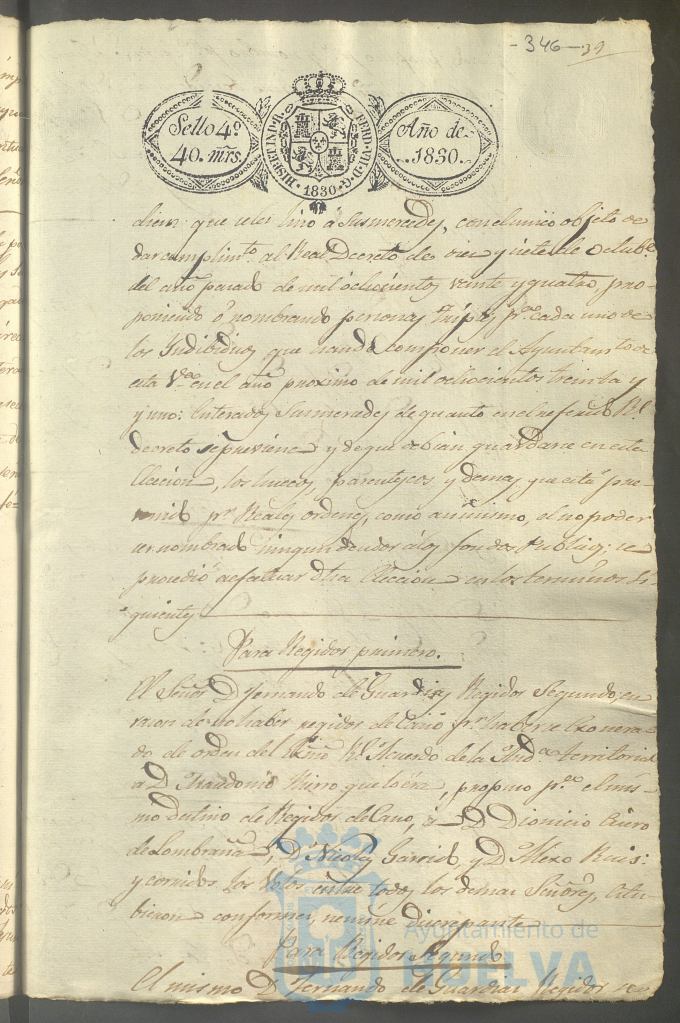 -346- 39
Sello 4º
40. mrs.
HISP. ET IND. R. FERD. VII. D. G.
1830
Año de
1830.
diem: que celebró á Susmercedes, con el unico objeto de
dar cumplimto. al Real Decreto de diez y siete de Octube.
del año pasado de mil ochocientos veinte y quatro, pro-
poniendo ó nombrando personas triples pa. cada uno de
los Individuos que han de componer el Ayuntamto. de
esta Va. en el año proximo de mil ochocientos treinta y
y uno: Enterados Susmercedes de quanto en el referido Rl.
decreto se previene y de que debian guardarse en esta
Eleccion, los huecos, parentescos y demas que está pre-
venido pr. Reales ordenes, como asimismo, el no poder
ser nombrado ningun deudor á los fondos Publicos; se
procedió a efectuar dha Eleccion en los terminos si-
guientes
Para Regidor primero.
El Señor D. Fernando de Guardias Regidor Segundo, en
razon de no haber regidor decano pr. haberse exonera-
do de orden del Exmo. Rl. Acuerdo de la Auda. territorial
a D. que lo era, propuso pa. el mis-
mo destino de Regidor decano, á D. Dionicio
de Lombraña, D. Nicolas Garrido, y D. Alexo Ruis:
y corridos los Votos entre todos los demas Señores, estu-
bieron conformes, nemine discrepante
Para Regidor Segundo
El mismo D. Fernando de Guardias Regidor
Ayuntamiento de
HUELVA